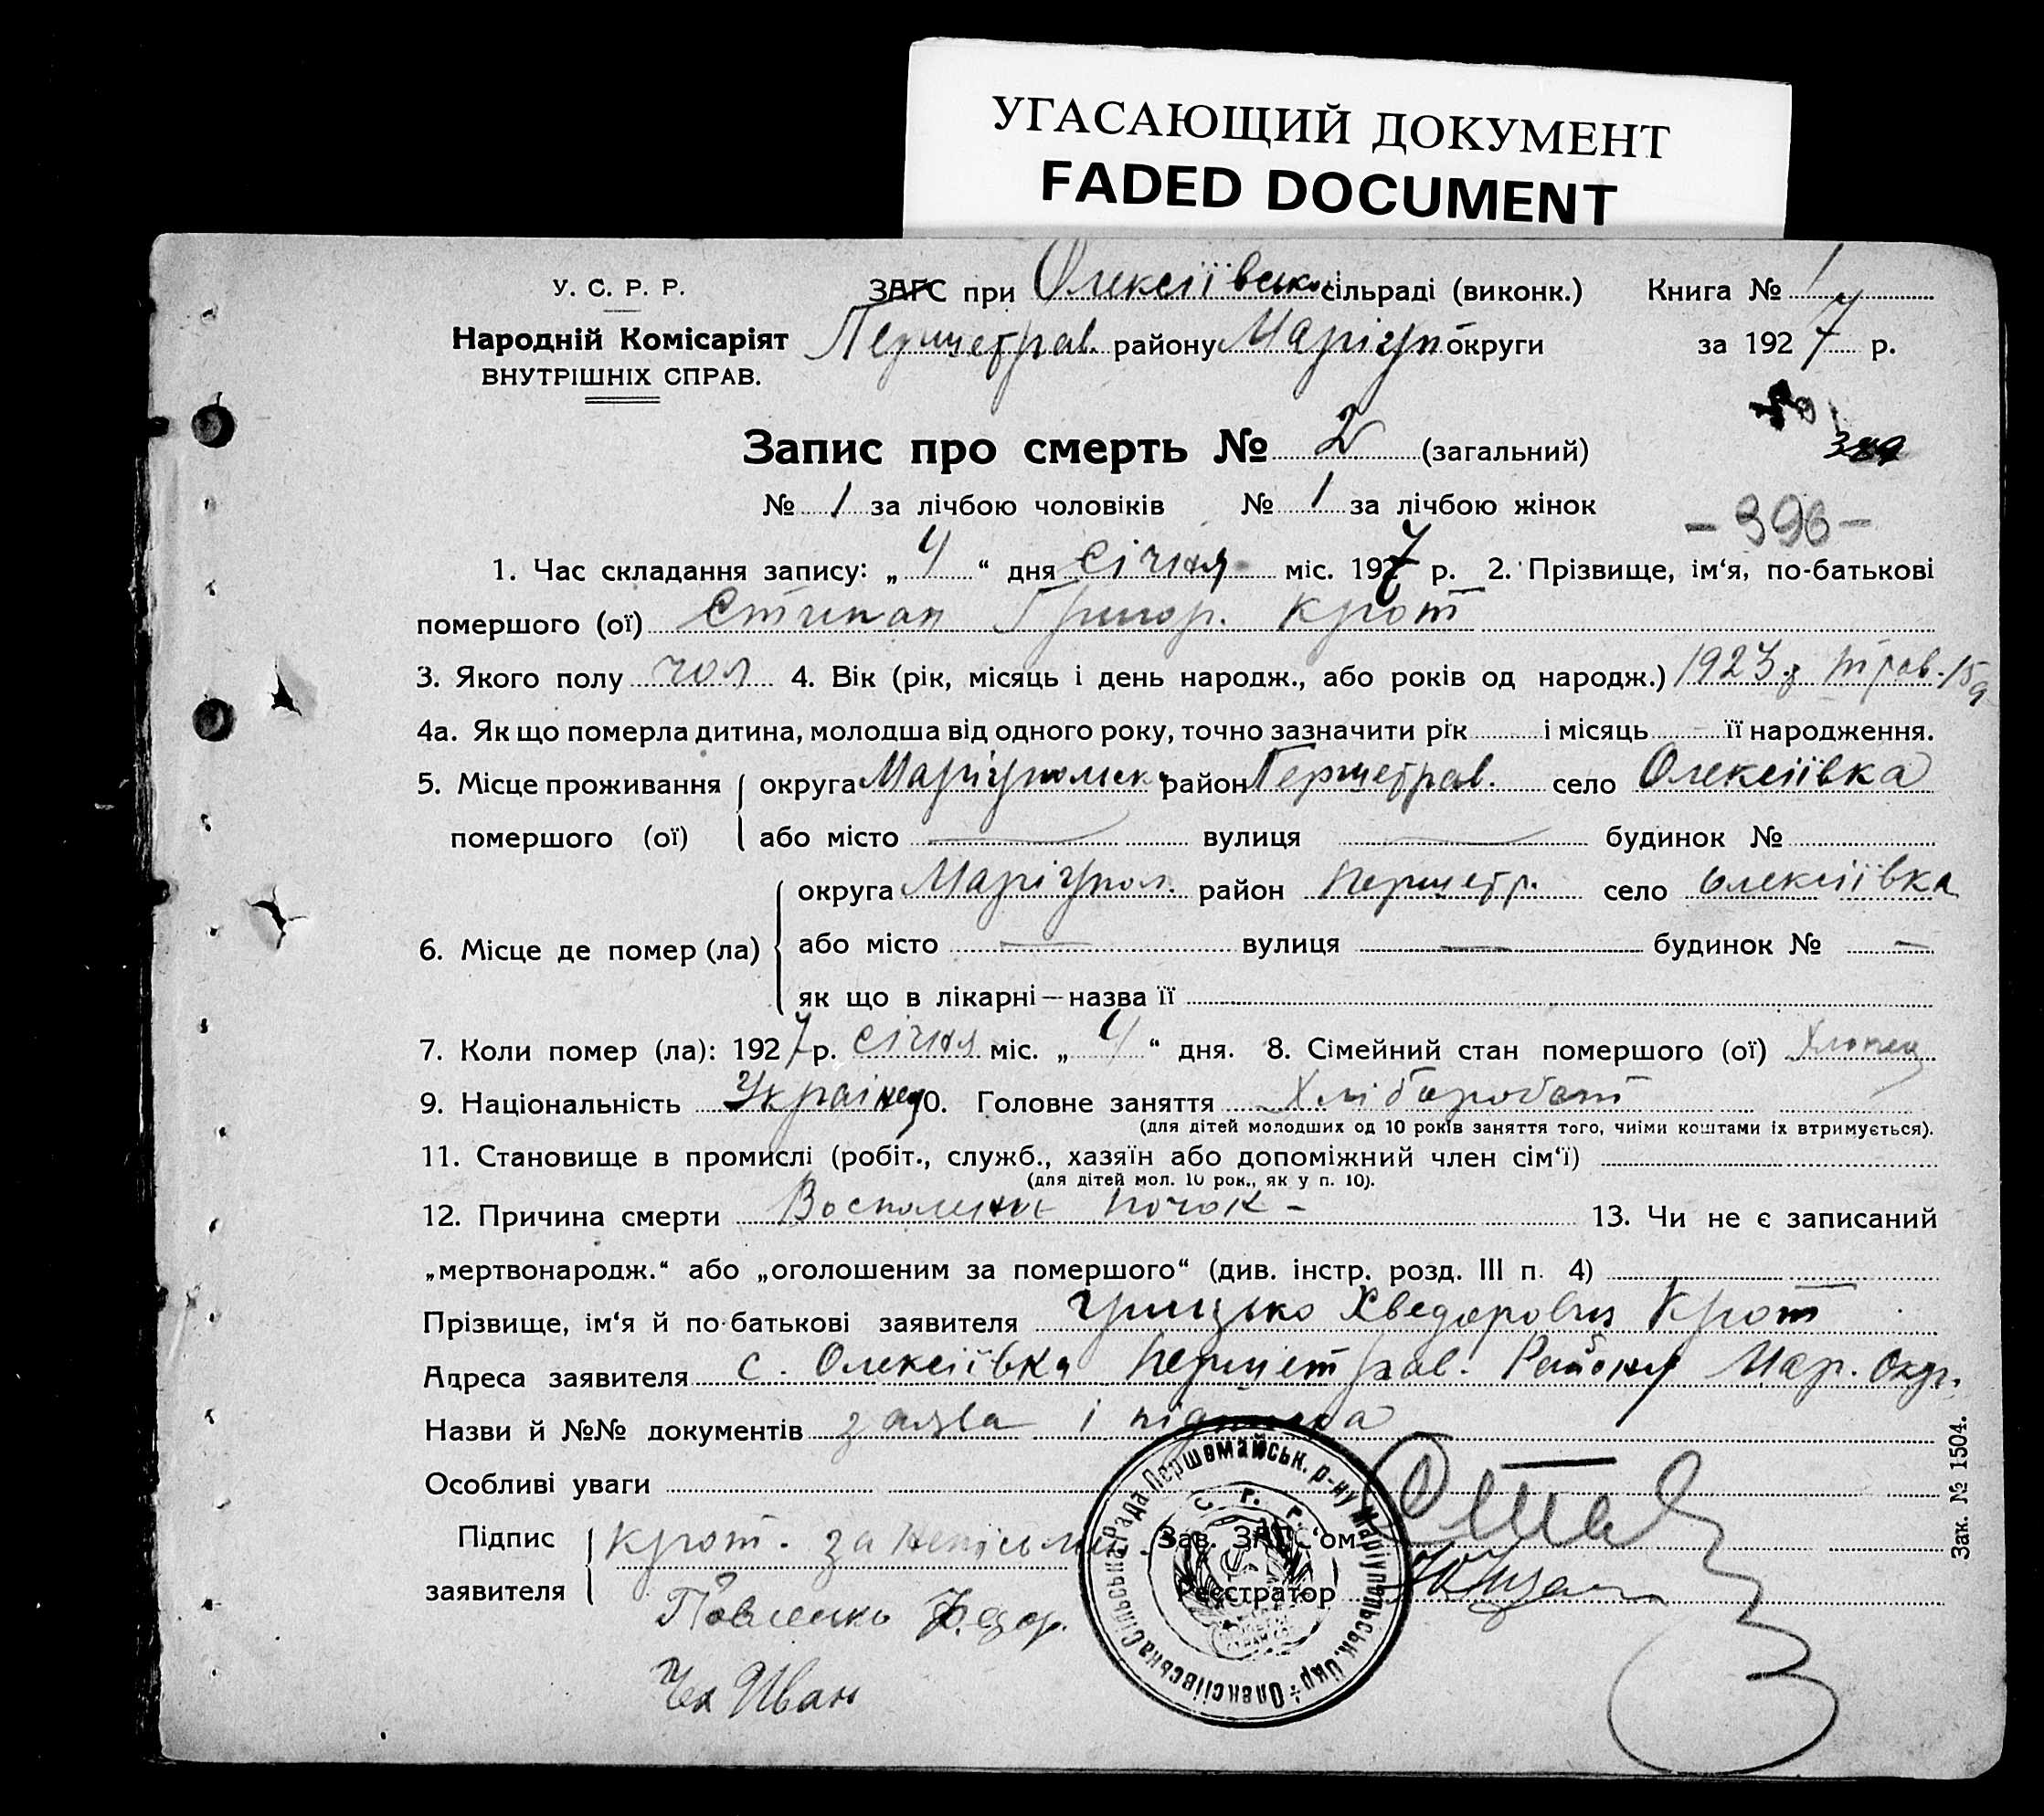 УГАСАЮЩИЙ ДОКУМЕНТ
FADED DOCUMENT
У. С. Р. Р. ЗАГС при Олексіївськ. сільраді (виконк.) Книга № 1
Народній Комісаріят Першетрав. району Маріуп округи за 1927 р.
ВНУТРІШНІХ СПРАВ.
Запис про смерть № 2 (загальний)
№ 1 за лічбою чоловіків № 1 за лічбою жінок
- 396 -
1. Час складання запису: „ 4 “ дня січня міс. 1927 р. 2. Прізвище, ім‘я, по-батькові
помершого (ої) Степан Григор. Крот
3. Якого полу чол 4. Вік (рік, місяць і день народж., або років од народж.) 1923 р трав. 15 д
4а. Як що померла дитина, молодша від одного року, точно зазначити рік і місяць її народження.
5. Місце проживання округа Маріупольск район Першетрав. село Олексіївка
помершого (ої) або місто вулиця будинок №
округа Маріупол. район Першетр. село Олексіївка
6. Місце де помер (ла) або місто — вулиця — будинок № —
як що в лікарні — назва її
7. Коли помер (ла): 1927 р. січня міс. „ 4 “ дня. 8. Сімейний стан помершого (ої) Хлопец
9. Національність Українец 10. Головне заняття Хлібаробот
(для дітей молодших од 10 років заняття того, чиїми коштами їх втримується).
11. Становище в промислі (робіт., служб., хазяїн або допоміжний член сім‘ї)
(для дітей мол. 10 рок., як у п. 10).
12. Причина смерти Воспаление почок - 13. Чи не є записаний
„мертвонародж.“ або „оголошеним за помершого“ (див. інстр. розд. III п. 4) —
Прізвище, ім‘я й по-батькові заявителя Грицько Хведорович Крот
Адреса заявителя с. Олексіївка Першетрав. Району Мар. Окр.
Назви й №№ документів заява і підписка
Особливі уваги
Підпис Крот. за Неписьмен. Зав. ЗАГС‘ом
заявителя Реєстратор
Павленко Федор.
Чех Иван
Олексіївська Сільська рада Першомайськ. р-ну Маріупольськ. Окр.
Зак. № 1504.